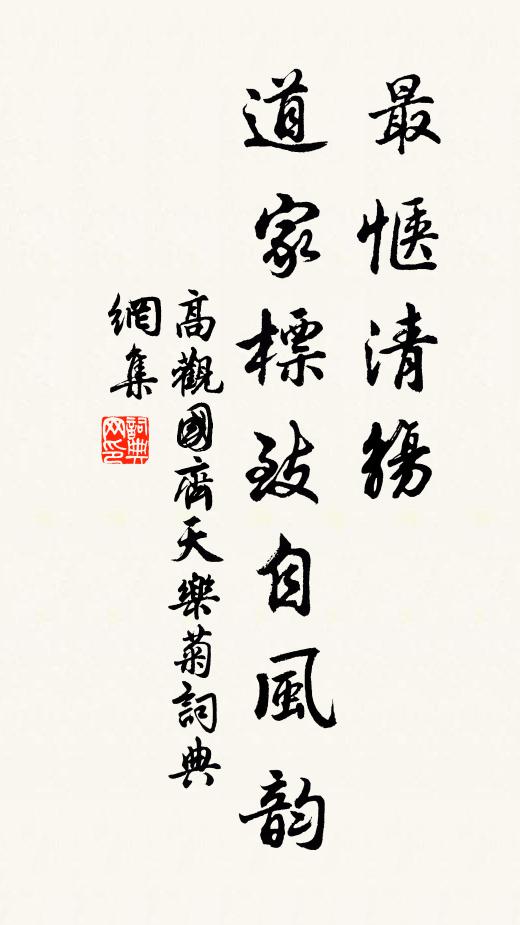 最惬清觴
道家標致自風韵
高觀國齊天樂菊詞典
網集
詞典
网印